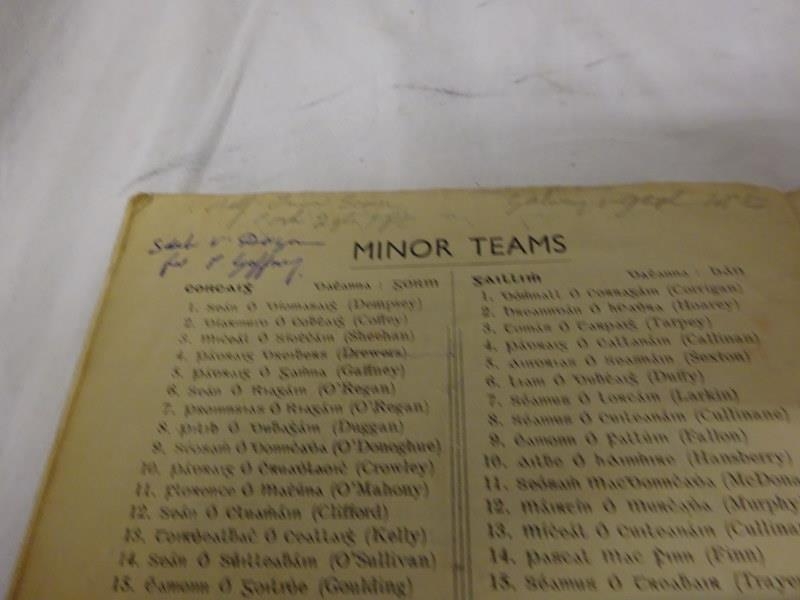 Sub
for P Gaffney
MINOR TEAMS
CORCAIĠ Daṫanna : GORM
1. Seán Ó Díomasaiġ (Dempsey)
2. Diarmuid Ó Coḃṫaiġ (Coffey)
3. Míċeál Ó Síoṫċáin (Sheehan)
4. Pádraig (Drewers)
5. Pádraig Ó Gaṁna (Gaffney)
6. Seán Ó Riagáin (O'Regan)
7. Proinnsias Ó Riagáin (O'Regan)
8. Pilib Ó Duḃagáin (Duggan)
9. Seosaṁ Ó Donnċaḋa (O'Donoghue)
10. Pádraig Ó Cruaḋlaoiċ (Crowley)
11. Florence Ó Maṫúna (O'Mahony)
12. Seán Ó Cluṁáin (Clifford)
13. Toirḋealḃaċ Ó Ceallaiġ (Kelly)
14. Seán Ó Súilleaḃáin (O'Sullivan)
15. Éamonn Ó Goilróe (Goulding)
GAILLIṀ Daṫanna : BÁN
1. Doṁnall Ó Corragáin (Corrigan)
2. Breandán Ó (Hoarey)
3. Tomás Ó Tarpaiġ (Tarpey)
4. Pádraig Ó Callanáin (Callinan)
5. Ó Seasnáin (Sexton)
6. Liam Ó Duḃṫaiġ (Duffy)
7. Séamus Ó Lorcáin (Larkin)
8. Séamus Ó Cuileanáin (Cullinane)
9. Éamonn Ó Fallúin (Fallon)
10. Ailbe Ó hAinṁire (Hansberry)
11. Seósaṁ MacDonnċaḋa (McDona
12. Máirtín Ó Murċaḋa (Murphy)
13. Míċeál Ó Cuileanáin (Cullina
14. Pascal Mac Finn (Finn)
15. Séamus Ó Treaḃair (Trayer